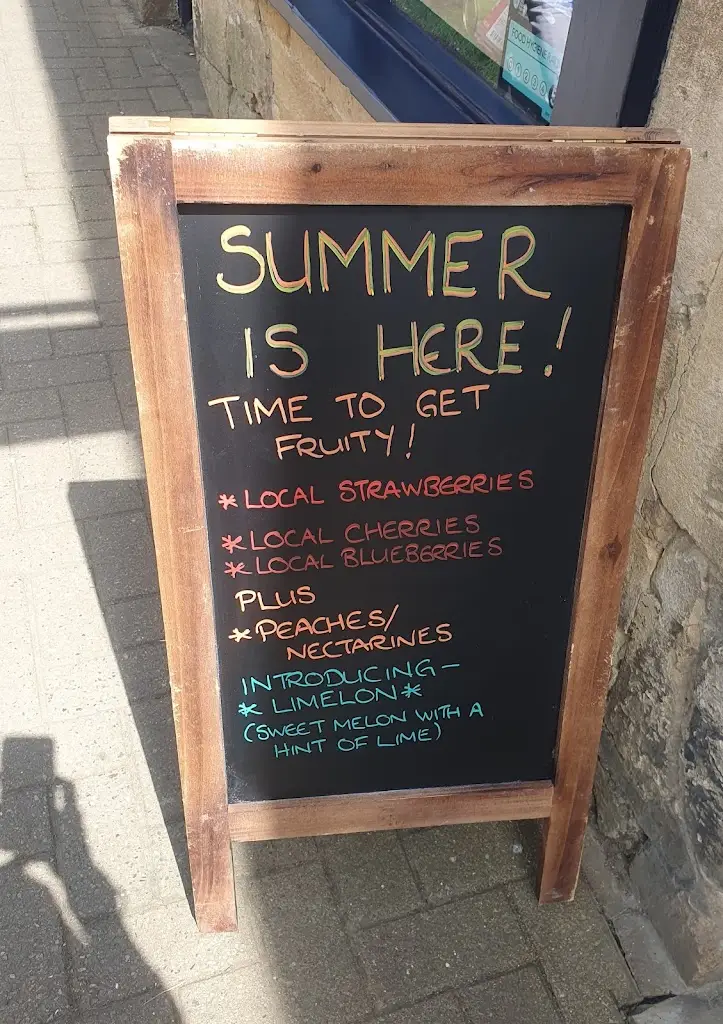 FOOD HYGIENE
SUMMER
IS HERE!
TIME TO GET
FRUITY!
*LOCAL STRAWBERRIES
*LOCAL CHERRIES
*LOCAL BLUEBERRIES
PLUS
*PEACHES/
NECTARINES
INTRODUCING-
* LIMELON*
(SWEET MELON WITH A
HINT OF LIME)